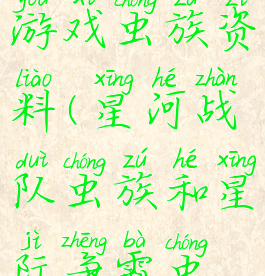 yóu xì chóng zú zī
游戏虫族资
liào xīng hé zhàn
料(星河战
duì chóng zú hé xīng
队虫族和星
jì zhēng bà chóng
际争霸虫